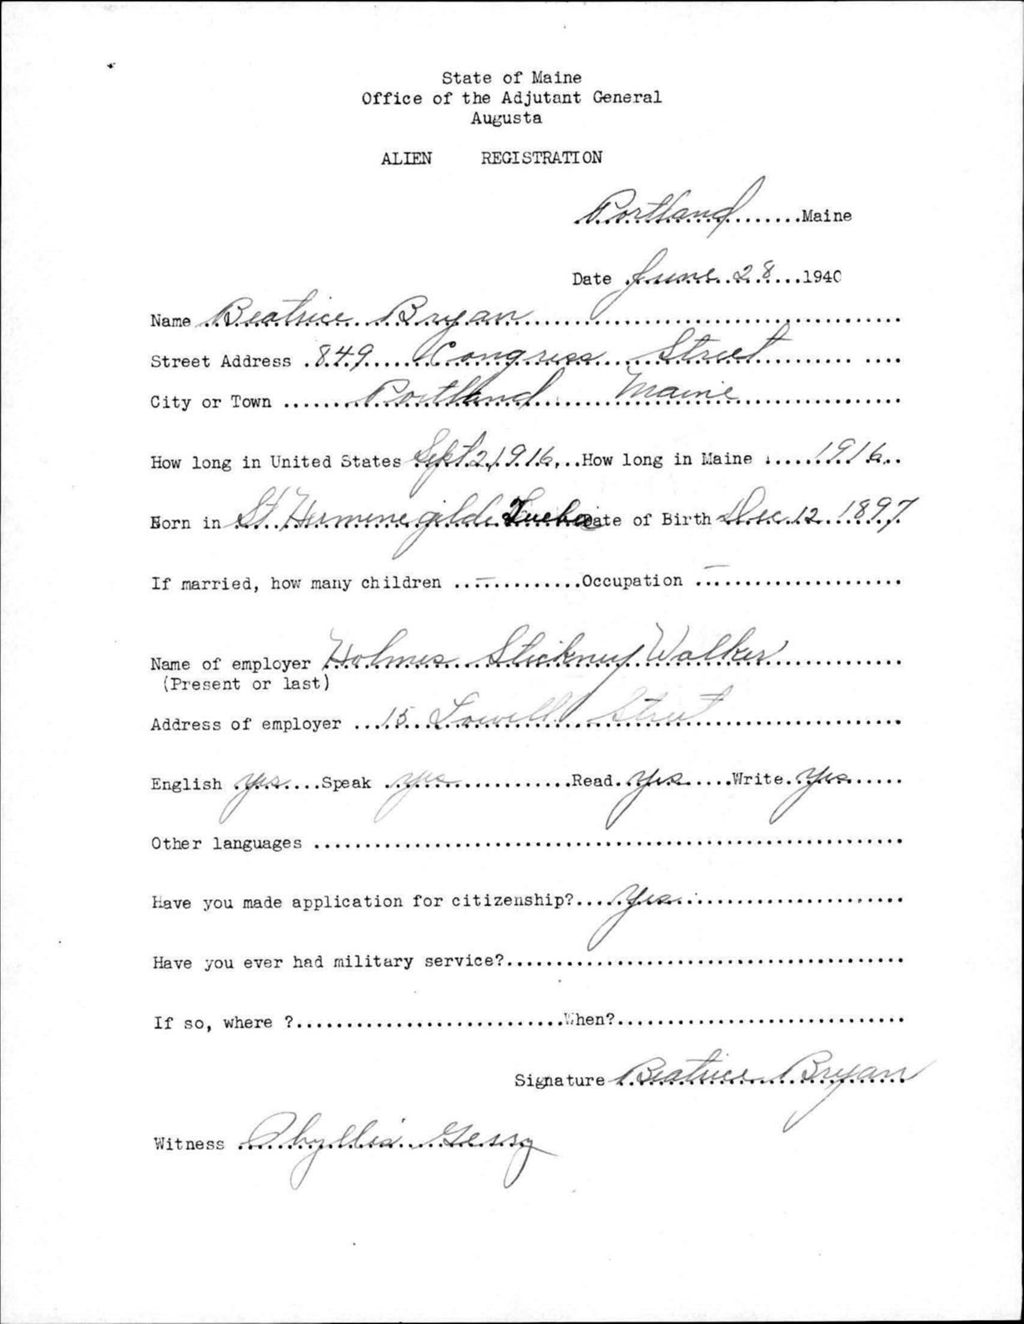 State of Maine
Office of the Adjutant General
Augusta
ALIEN REGISTRATION
Portland Maine
Date June 28 1940
Name Beatrice Bryan
Street Address 849 Congress Street
City or Town Portland Maine
How long in United States Sept 2, 1916 How long in Maine 1916
Born in St Hermenegilde Quebec Date of Birth Dec. 12 1897
If married, how many children — Occupation —
Name of employer Holmes Stickney Walker
(Present or last)
Address of employer 15 Lowell Street
English yes Speak yes Read yes Write yes
Other languages
Have you made application for citizenship? Yes
Have you ever had military service?
If so, where ? When?
Signature Beatrice Bryan
Witness Phyllis